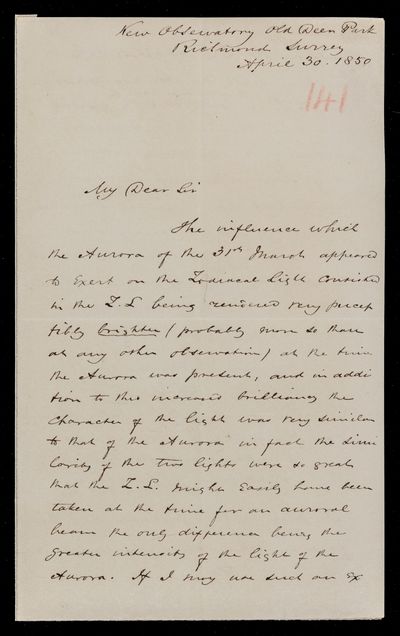 Kew Observatory Old Deer Park
Richmond Surrey
April 30. 1850
141
My Dear Sir
The influence which
the Aurora of the 31st March appeared
to exert on the Zodiacal Light consisted
in the Z. L being rendered very percep
tibly brighter (probably more so than
at any other observation) at the time
the Aurora was present, and in addi
tion to this increased brilliancy the
character of the light was very similar
to that of the Aurora in fact the simi
larity of the two lights were so great
that the Z. L. might easily have been
taken at the time for an auroral
beam the only difference being the
greater intensity of the light of the
Aurora. If I may use such an ex